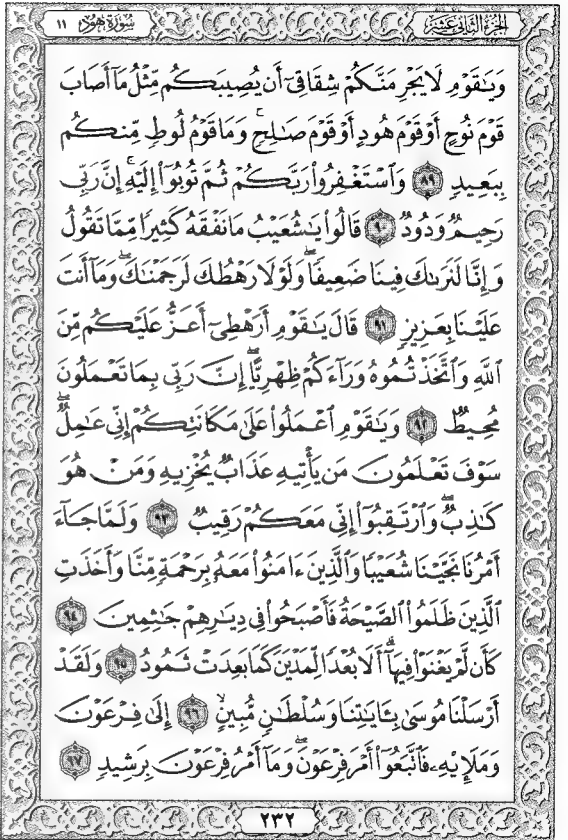 الجزء الثاني عشر
سورة هود ١١
وَيَٰقَوۡمِ لَا يَجۡرِمَنَّكُمۡ شِقَاقِيٓ أَن يُصِيبَكُم مِّثۡلُ مَآ أَصَابَ
قَوۡمَ نُوحٍ أَوۡ قَوۡمَ هُودٍ أَوۡ قَوۡمَ صَٰلِحٖۚ وَمَا قَوۡمُ لُوطٖ مِّنكُم
بِبَعِيدٖ ٨٩ وَٱسۡتَغۡفِرُواْ رَبَّكُمۡ ثُمَّ تُوبُوٓاْ إِلَيۡهِۚ إِنَّ رَبِّي
رَحِيمٞ وَدُودٞ ٩٠ قَالُواْ يَٰشُعَيۡبُ مَا نَفۡقَهُ كَثِيرٗا مِّمَّا تَقُولُ
وَإِنَّا لَنَرَىٰكَ فِينَا ضَعِيفٗاۖ وَلَوۡلَا رَهۡطُكَ لَرَجَمۡنَٰكَۖ وَمَآ أَنتَ
عَلَيۡنَا بِعَزِيزٖ ٩١ قَالَ يَٰقَوۡمِ أَرَهۡطِيٓ أَعَزُّ عَلَيۡكُم مِّنَ
ٱللَّهِ وَٱتَّخَذۡتُمُوهُ وَرَآءَكُمۡ ظِهۡرِيًّاۖ إِنَّ رَبِّي بِمَا تَعۡمَلُونَ
مُحِيطٞ ٩٢ وَيَٰقَوۡمِ ٱعۡمَلُواْ عَلَىٰ مَكَانَتِكُمۡ إِنِّي عَٰمِلٞۖ
سَوۡفَ تَعۡلَمُونَ مَن يَأۡتِيهِ عَذَابٞ يُخۡزِيهِ وَمَنۡ هُوَ
كَٰذِبٞۖ وَٱرۡتَقِبُوٓاْ إِنِّي مَعَكُمۡ رَقِيبٞ ٩٣ وَلَمَّا جَآءَ
أَمۡرُنَا نَجَّيۡنَا شُعَيۡبٗا وَٱلَّذِينَ ءَامَنُواْ مَعَهُۥ بِرَحۡمَةٖ مِّنَّا وَأَخَذَتِ
ٱلَّذِينَ ظَلَمُواْ ٱلصَّيۡحَةُ فَأَصۡبَحُواْ فِي دِيَٰرِهِمۡ جَٰثِمِينَ ٩٤
كَأَن لَّمۡ يَغۡنَوۡاْ فِيهَآۗ أَلَا بُعۡدٗا لِّمَدۡيَنَ كَمَا بَعِدَتۡ ثَمُودُ ٩٥ وَلَقَدۡ
أَرۡسَلۡنَا مُوسَىٰ بِـَٔايَٰتِنَا وَسُلۡطَٰنٖ مُّبِينٍ ٩٦ إِلَىٰ فِرۡعَوۡنَ
وَمَلَإِيْهِۦ فَٱتَّبَعُوٓاْ أَمۡرَ فِرۡعَوۡنَۖ وَمَآ أَمۡرُ فِرۡعَوۡنَ بِرَشِيدٖ ٩٧
٢٣٢